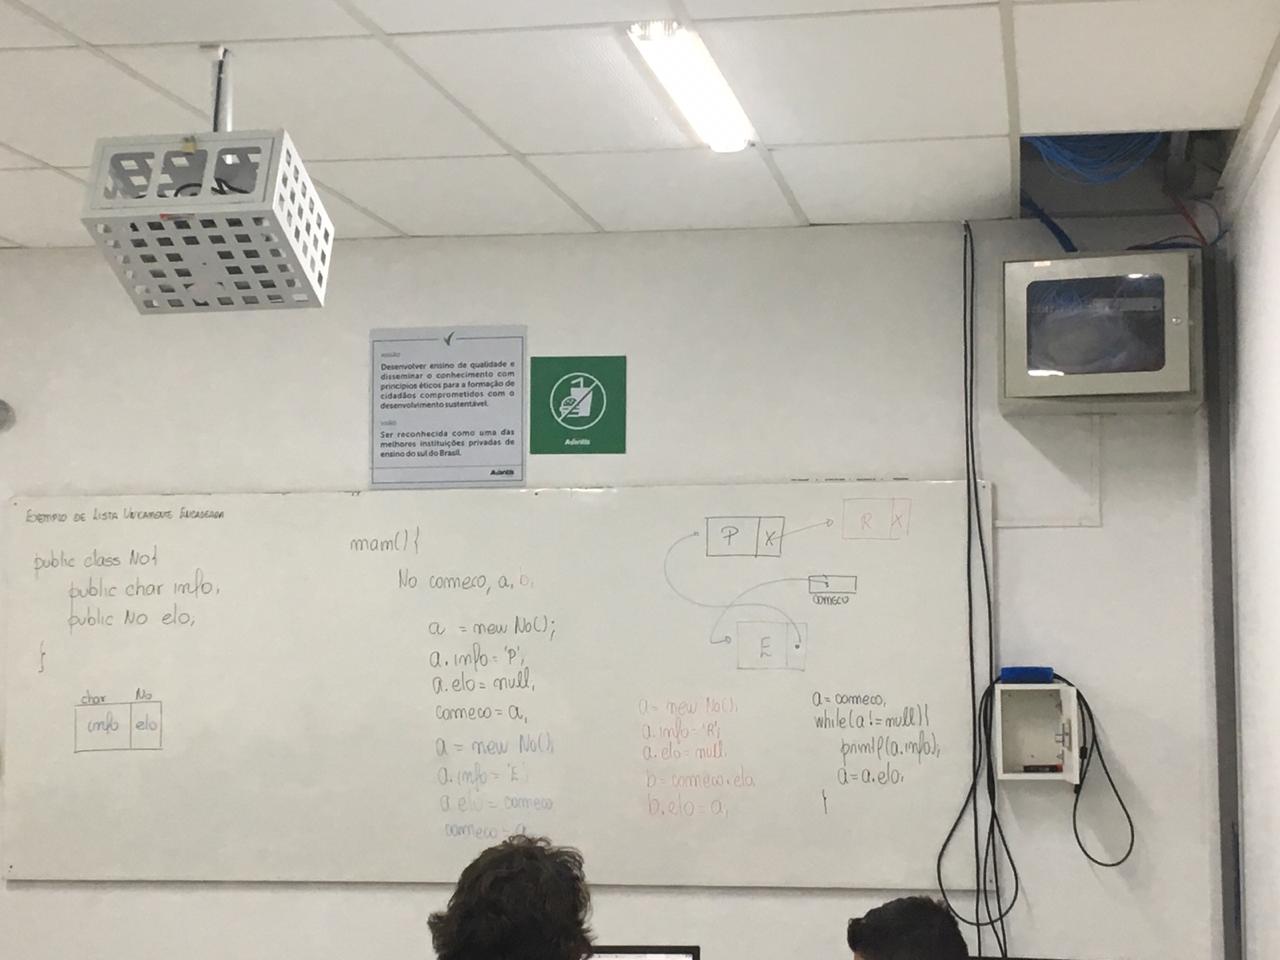 MISSÃO
Desenvolver ensino de qualidade e
disseminar o conhecimento com
princípios éticos para a formação de
cidadãos comprometidos com o
desenvolvimento sustentável.
VISÃO
Ser reconhecida como uma das
melhores instituições privadas de
ensino do sul do Brasil.
Avantis
Avantis
EXEMPLO DE LISTA UNICAMENTE ENCADEADA
public class No{
public char info;
public No elo;
}
char No
info elo
main(){
No comeco, a, b;
a = new No();
a.info = 'P';
a.elo = null;
comeco = a;
a = new No();
a.info = 'E';
a.elo = comeco
comeco = a
P X
R X
COMECO
E
a = new No();
a.info = 'R';
a.elo = null;
b = comeco.elo;
b.elo = a;
a = comeco;
while(a != null){
printf(a.info);
a = a.elo;
}